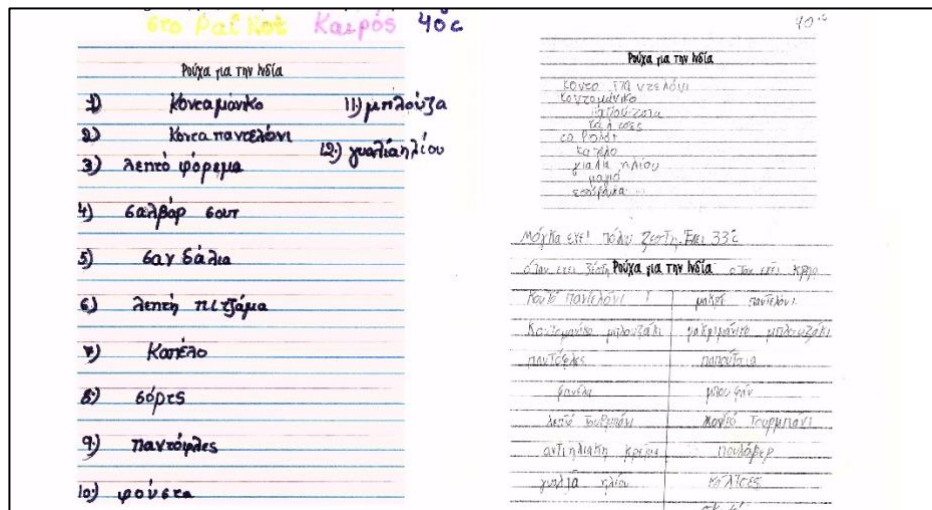 στο Ραϊκοτ Καιρός 40°c
Ρούχα για την Ινδία
1) κονταμάνικο
2) κοντα παντελόνι
3) λεπτό φόρεμα
4) σαλβάρ σουτ
5) σανδάλια
6) λεπτή πιτζάμα
7) Καπέλο
8) σόρτς
9) παντόφλες
10) φούστα
11) μπλούζα
12) γυαλιά ηλίου
40°c
Ρούχα για την Ινδία
κοντομάνικο
καπέλο
γιαλια ηλιου
μαγιό
Μόγκα εχει πολυ ζεστη. Εχει 33°c
οταν εχει ζέστη Ρούχα για την Ινδία οταν εχει κρύο
κοντό παντελόνι ! μακρί παντελόνι
μπλουζάκι μακριμάνικο μπλουζάκι
παντόφλες παπούτσια
φανέλα μπουφάν
λεπτό τουρμπάνι τουρμπάνι
αντιηλιακη κρέμα πουλόβερ
γυαλιά ηλίου κάλτσες